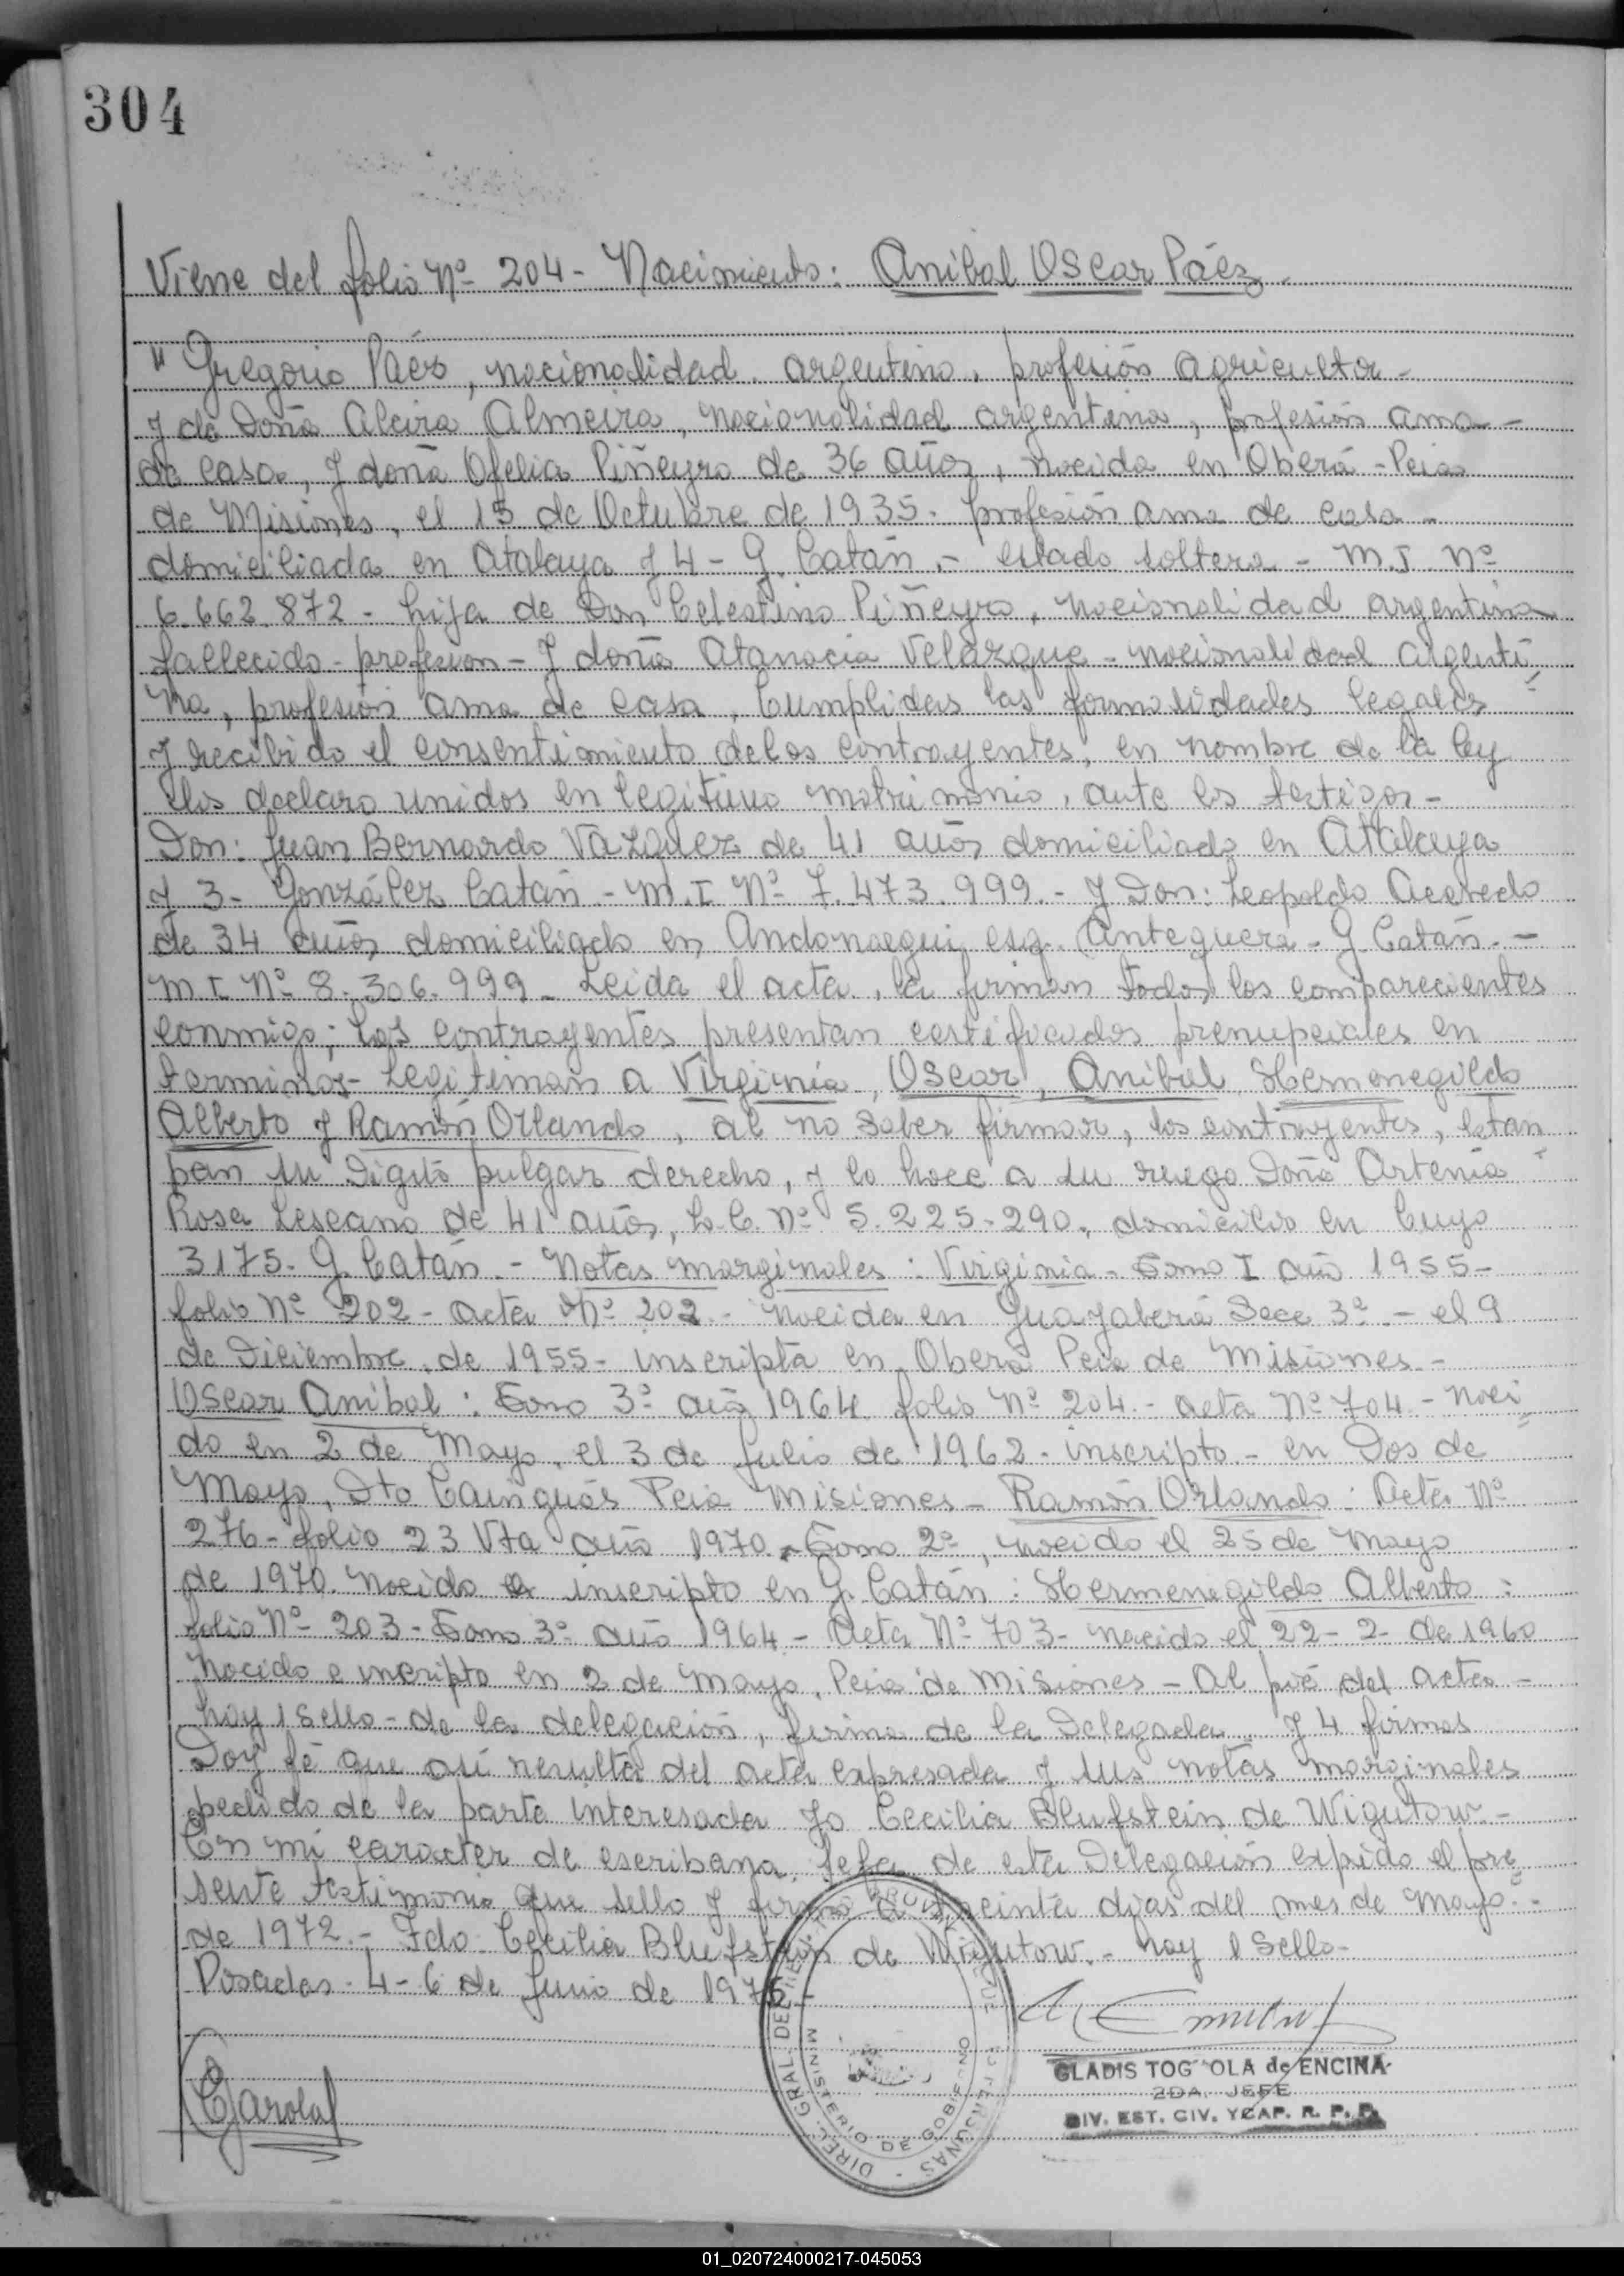 304
Viene del folio Nº 204 - Nacimiento: Anibal Oscar Páez.
" Gregorio Páez, nacionalidad. argentino, profesión agricultor -
y de Doña Alcira Almeira, nacionalidad argentina, profesión ama -
de casa, y doña Ofelia Piñeyro de 36 años, nacida en Oberá - Pcia
de Misiones, el 15 de Octubre de 1935. profesión ama de casa -
domiciliada en Atalaya y 4 - G. Catán. - estado soltera - M.I. Nº
6.662.872 - hija de Don Celestino Piñeyro, nacionalidad argentina
fallecido - profesion - y doña Atanacia Velazque - nacionalidad argenti
na, profesión ama de casa, Cumplidas las formalidades legales
y recibido el consentimiento de los contrayentes, en nombre de la ley
los declaro unidos en legitimo matrimonio, ante los testigos -
Don: Juan Bernardo Vazquez de 41 años domiciliado en Atalaya
y 3 - González Catán - M.I Nº 7.473.999. - y Don: Leopoldo Acevedo
de 34 años domiciliado en Andonaegui esq. Antequera - G. Catán. -
M I. Nº 8.306.999 - Leida el acta, la firman todos los comparecientes
conmigo; Los contrayentes presentan certificados prenupciales en
terminos - Legitiman a Virginia, Oscar, Anibal, Hermenegildo
Alberto y Ramón Orlando, al no saber firmar, los contrayentes, estam
pan su Digito pulgar derecho, y lo hace a su ruego Doña Artenia
Rosa Lescano de 41 años, L.C. Nº 5.225-290, domicilio en Cuyo
3175 - G. Catán. - Notas marginales: Virginia - Tomo I año 1955 -
folio Nº 202 - acta Nº 202 - nacida en Guayaberá Secc 3ª. - el 9
de Diciembre, de 1955 - inscripta en Oberá Pcia de Misiones -
Oscar Anibal: Tomo 3º año 1964 folio Nº 204. - acta Nº 704 - naci
do en 2 de Mayo, el 3 de Julio de 1962 - inscripto - en Dos de
Mayo, Dto Cainguás Pcia Misiones - Ramón Orlando: Acta Nº
276 - folio 23 Vta año 1970. Tomo 2º, nacido el 25 de Mayo
de 1970. Nacido e inscripto en G. Catán: Hermenegildo Alberto:
folio Nº 203 - Tomo 3º año 1964 - Acta Nº 703 - nacido el 22-2- de 1960
Nacido e incripto en 2 de Mayo, Pcia de Misiones - Al pié del acta -
hay 1 sello - de la delegación, firma de la Delegada y 4 firmas
Doy fé que asi resulta del acta expresada y sus notas marginales
pedido de la parte interesada Yo Cecilia Blufstein de Wigutow. -
En mi caracter de escribana Jefa de esta Delegación expido el pre
sente testimonio que sello y firmo a treinta dias del mes de Mayo. -
de 1972. - Fdo. Cecilia Blufstein de Wigutow. - hay 1 Sello -
Posadas - 4 - 6 de Junio de 1975 -
DIREC. GRAL. DE PERSONAS
MINISTERIO DE GOBIERNO
GLADIS TOG OLA de ENCINA
2DA. JEFE
DIV. EST. CIV. Y CAP. R. P. P.
01_020724000217-045053